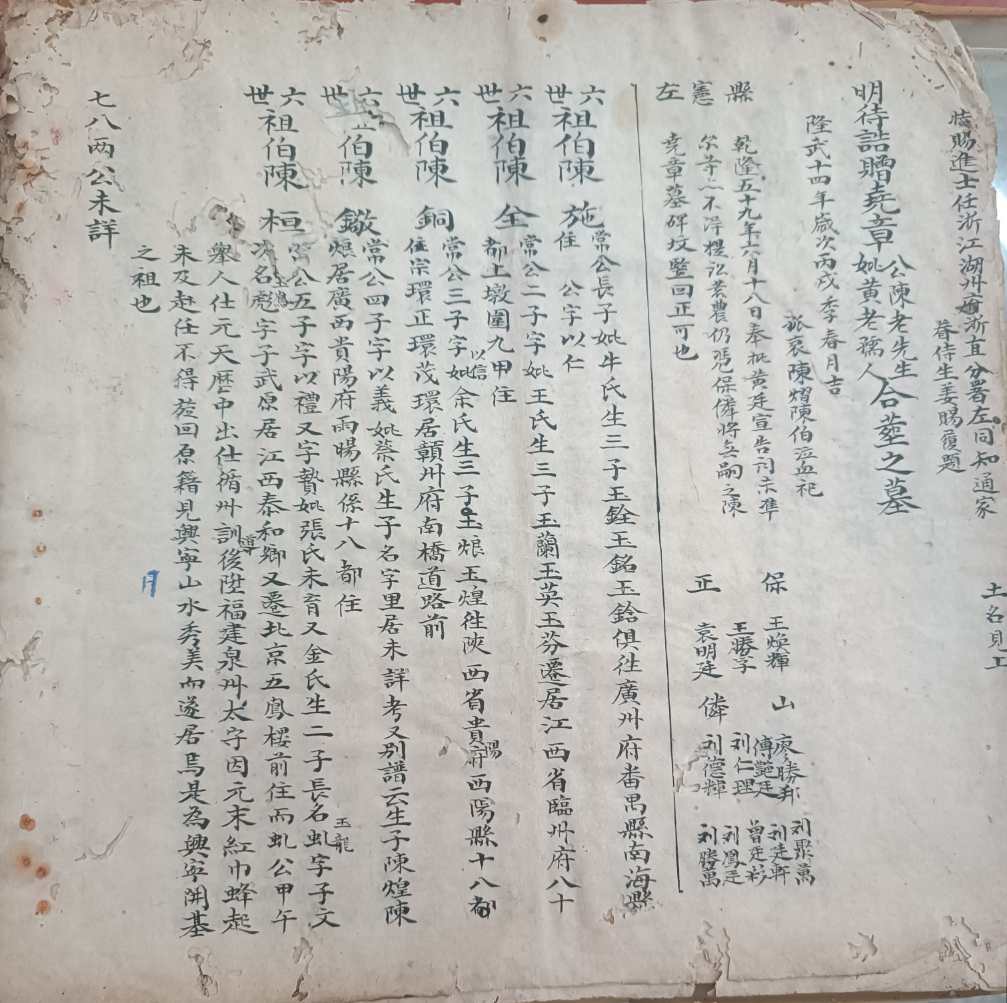 土名見上
特賜進士任浙江湖州府浙直分署左同知通家
眷侍生姜賜履題
明待誥贈堯章公陳老先生妣黃老孺人合塟之墓
隆武十四年歲次丙戌季春月吉
孤哀陳熠陳伯泣血祀
縣憲左
乾隆五十九年六月十八日奉批黃廷宣告詞未準
尔等亦不得捏訟若農仍慿保僯將無嗣之陳
堯章墓碑坟竪回正可也
保 王煥輝 山 廖勝邦 刘聚萬
王勝字 傅艷廷 曾廷彩 刘廷軒
正 袁明廷 僯 刘仁理 刘鳳廷
刘德輝 刘勝萬
六世祖伯陳施 常公長子妣牛氏生三子玉銓玉銘玉鋡俱徃廣州府番禺縣南海縣
住 公字以仁
六世祖伯陳全 常公二子字妣王氏生三子玉蘭玉英玉芬遷居江西省臨州府八十
都上墩圍九甲住
六世祖伯陳銅 常公三子字以信妣余氏生三子玉烺玉煌徃陝西省貴陽府西陽縣十八都
住宗環正環茂環居贛州府南橋道路前
六世祖伯陳鏾 常公四子字以義妣蔡氏生子名字里居未詳考又别譜云生子陳煌陳
烺居廣西貴陽府雨暘縣係十八都住
六世祖伯陳桓 常公五子字以禮又字贊妣張氏未育又金氏生二子長名虬字子文玉龍
次名彪字子武玉慿原居江西泰和鄉又遷北京五鳳樓前住而虬公甲午
舉人仕元天歷中出仕循州訓導後陞福建泉州太字因元末紅巾蜂起
未及赴任不得莅回原籍見興寧山水秀美而遂居焉是為興寧開基
之祖也
月
七八兩公未詳